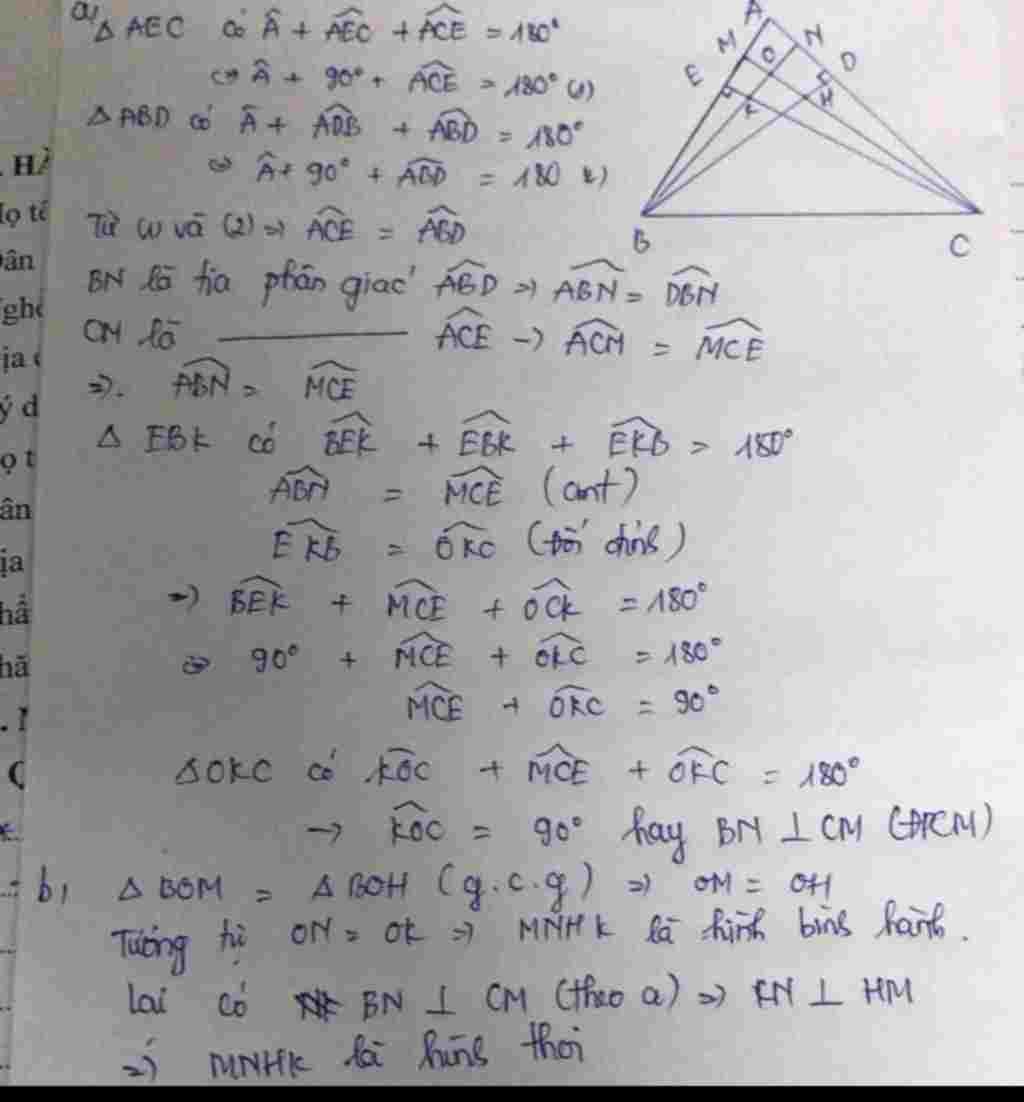 a, Δ AEC có Â + AEC + ACE = 180°
⇔ Â + 90° + ACE = 180° (1)
Δ ABD có Â + ADB + ABD = 180°
⇔ Â + 90° + ABD = 180 (2)
Từ (1) và (2) ⇒ ACE = ABD
BN là tia phân giác ABD ⇒ ABN = DBN
CM là ——— ACE → ACM = MCE
⇒. ABN = MCE
Δ EBK có BEK + EBK + EKB = 180°
ABN = MCE (cmt)
EKB = OKC (đối đỉnh)
⇒ BEK + MCE + OCK = 180°
⇔ 90° + MCE + OKC = 180°
MCE + OKC = 90°
ΔOKC có KOC + MCE + OKC = 180°
→ KOC = 90° hay BN ⊥ CM (ĐPCM)
b, Δ BOM = Δ BOH (g.c.g) ⇒ OM = OH
Tương tự ON = OK ⇒ MNHK là hình bình hành.
lại có BN ⊥ CM (theo a) ⇒ KN ⊥ HM
⇒ MNHK là hình thoi
A
M
N
O
D
E
K
H
B
C
. HÀ
Họ tê
ân
ghề
ịa c
ý d
ọ t
ân
ịa
hẩ
hă